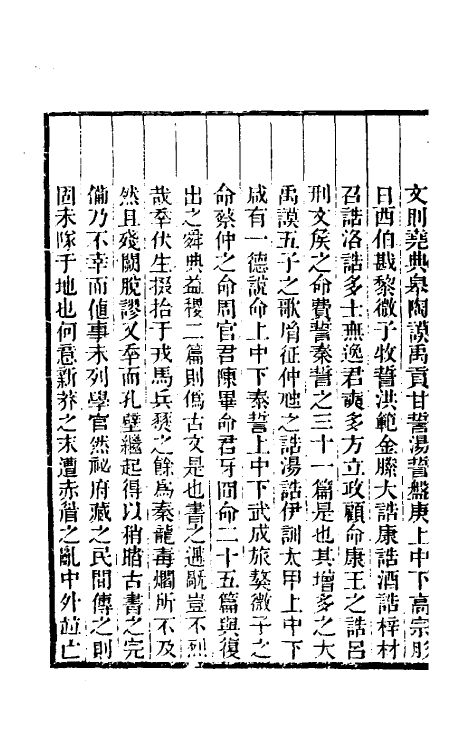 文則堯典臯陶謨禹貢甘誓湯誓盤庚上中下高宗肜
日西伯戡黎微子牧誓洪範金縢大誥康誥酒誥梓材
召誥洛誥多士無逸君奭多方立政顧命康王之誥呂
刑文侯之命費誓秦誓之三十一篇是也其增多之大
禹謨五子之歌胤征仲虺之誥湯誥伊訓太甲上中下
咸有一德說命上中下泰誓上中下武成旅獒微子之
命蔡仲之命周官君陳畢命君牙冏命二十五篇與復
出之舜典益稷二篇則僞古文是也書之遘厄豈不烈
哉幸伏生掇拾于戎馬兵燹之餘爲秦龍毒爓所不及
然且殘闕脫謬又幸而孔壁繼起得以稍睹古書之完
備乃不幸而値事未列學官然祕府藏之民間傳之則
固未隊于地也何意新莽之末遭赤眉之亂中外竝亡